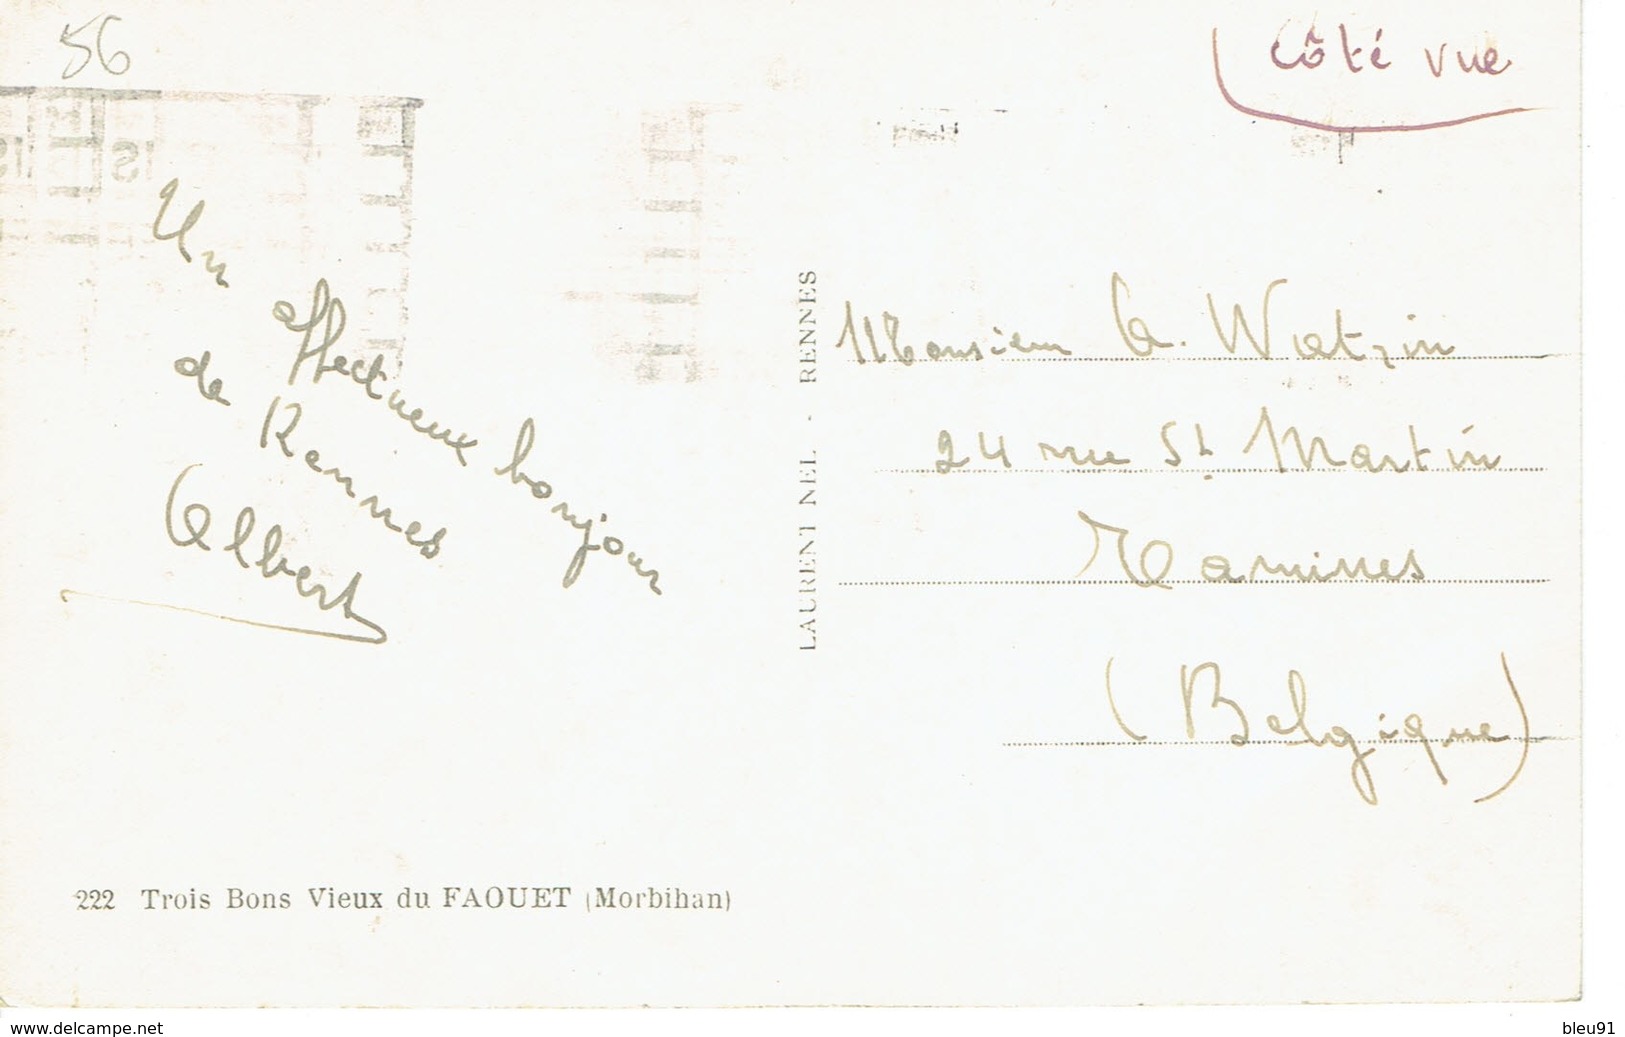 56
côté vue
Un affectueux bonjour
de Rennes
Albert
LAURENT NEL - RENNES
Monsieur A. Watzin
24 rue St Martin
Tamines
(Belgique)
222 Trois Bons Vieux du FAOUET (Morbihan)
www.delcampe.net
bleu91